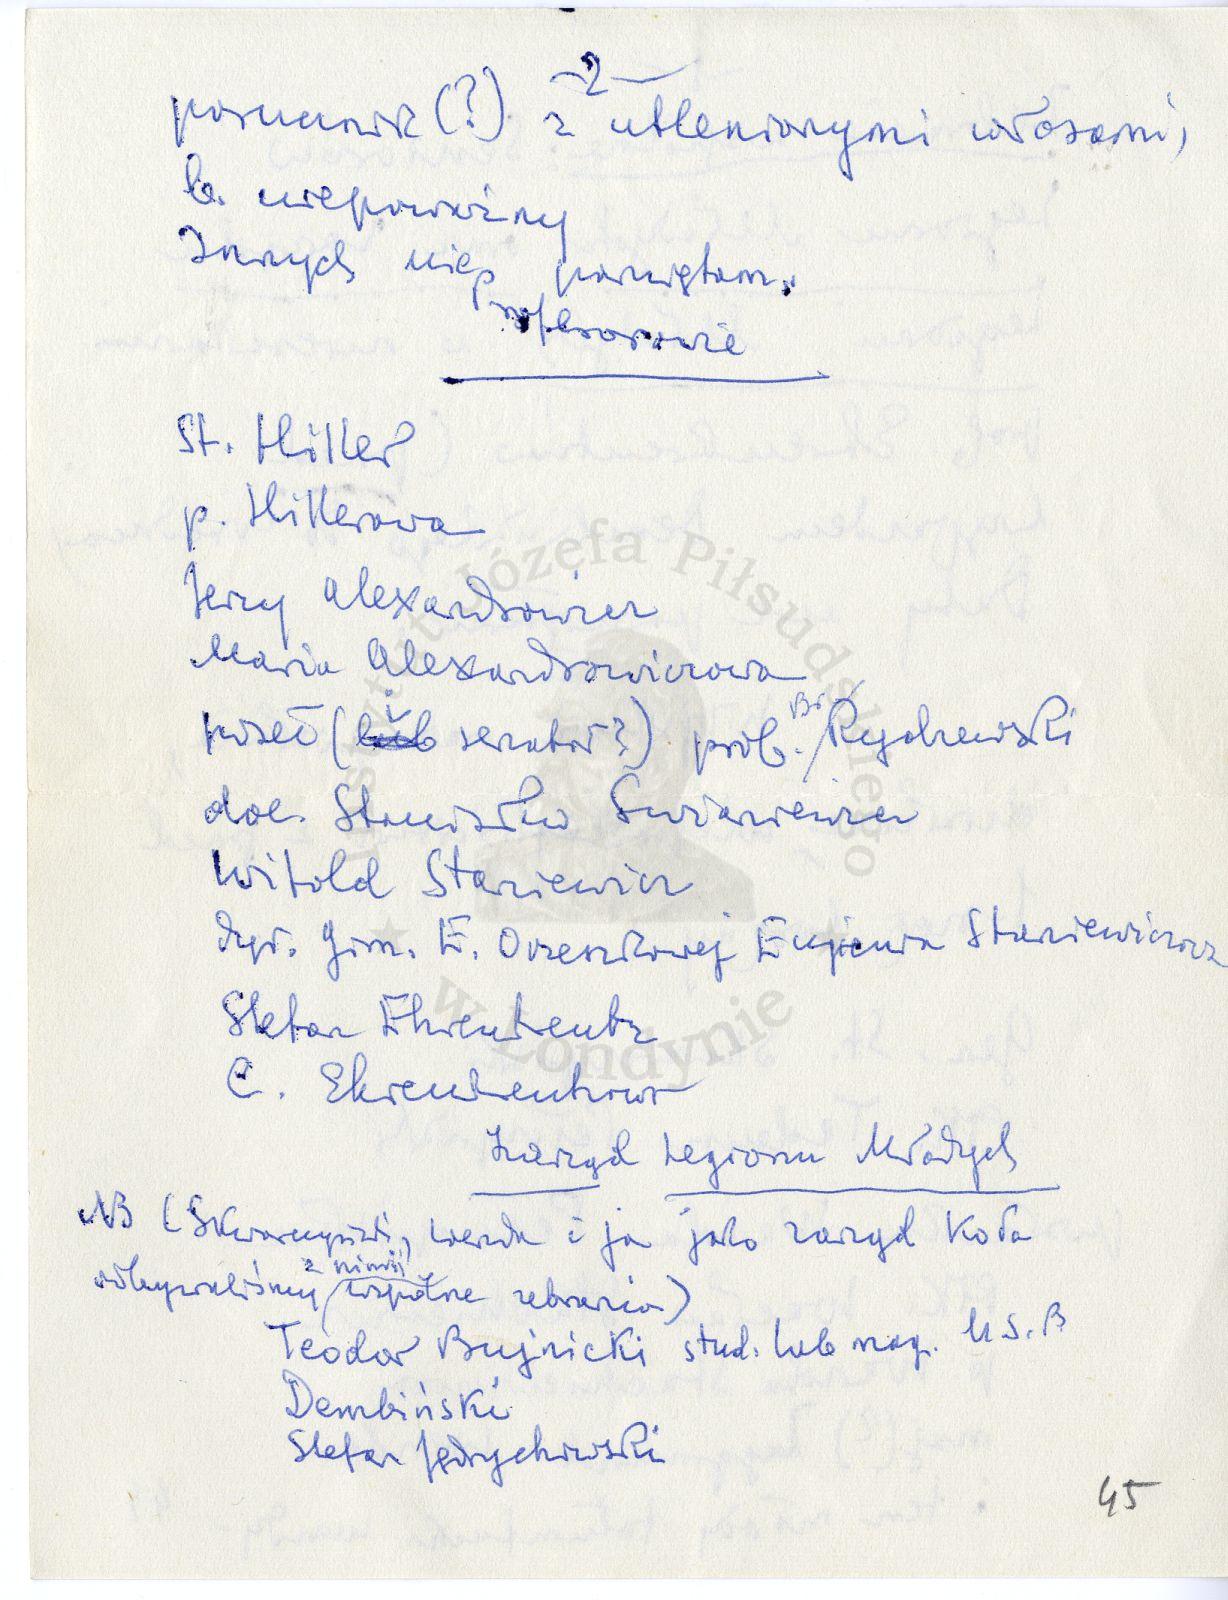 – 2 –
porucznik (?) z utlenionymi włosami,
b. niepoważny
Innych nie pamiętam.
Profesorowie
St. Hiller
p. Hillerowa
Jerzy Alexandrowicz
Maria Alexandrowiczowa
poseł (i senator?) prof. Br. Rydzewski
doc. Stanisław Swianiewicz
Witold Staniewicz
dyr. gim. E. Orzeszkowej Eugienia Staniewiczowa
Stefan Ehrenkreutz
C. Ehrenkreutzowa
Zarząd Legionu Młodych
NB (Skwarczyński, i ja jako zarząd Koła
odbywaliśmy z nimi wspólne zebrania)
Teodor Bujnicki stud. lub mag. U.S.B
Dembiński
Stefan Jędrychowski
45
Instytut Józefa Piłsudskiego
w Londynie